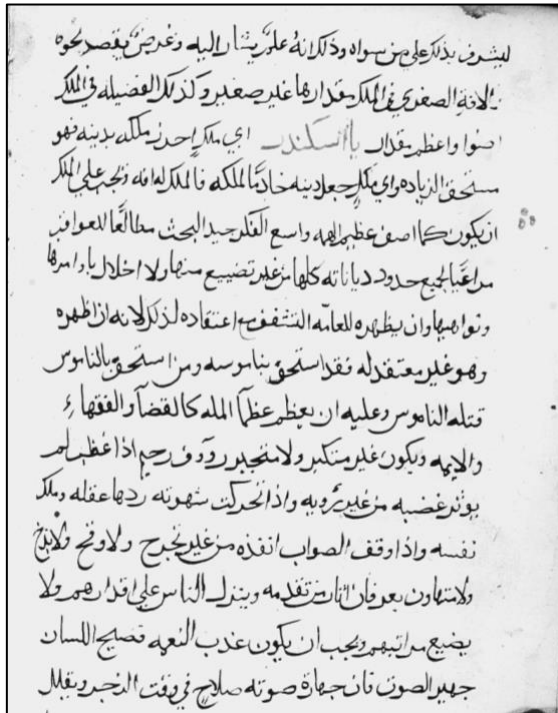 ليشرف بذلك على من سواه وذلك انه علم يشار اليه وغرض يقصد نحوه
والافة الصغرى في الملك مقدارها غير صغير وكذلك الفضيله في الملك
اضوا واعظم مقدار يا اسكندر اي ملك اخدم ملكه بدينه فهو
مستحق الزياده واي ملك جعل دينه خادما لملكه فالملك له افه ويجب على الملك
ان يكون كما اصف عظيم الهمه واسع الفكر جيد البحث مطالعا للعواقب
مراعيا لجميع حدود دياناته كلها من غير تضييع منها ولا اخلال باوامرها
ونواهيها وان يظهره للعامه التشفف مع اعتقاده لذلك لانه ان اظهره
وهو غير معتقد له فقد استخف بناموسه ومن استخف بالناموس
قتله الناموس وعليه ان يعظم عظما المله كالقضاه والفقهاء
والايمه ويكون غير متكبر ولا متجبر رووف رحيم اذا غضب لم
يوثر غضبه من غير رويه واذا تحركت شهوته ردها عقله وملك
نفسه واذا وقف الصواب انفذه من غير تحرج ولا وقح ولا بذخ
ولا متهاون بعرفان اثار من تقدمه وينزل الناس على اقدارهم ولا
يضيع مراتبهم ويجب ان يكون عذب النعمه فصيح اللسان
جهير الصوت فان جهارة صوته صلاح في وقت الزجر ويقلل